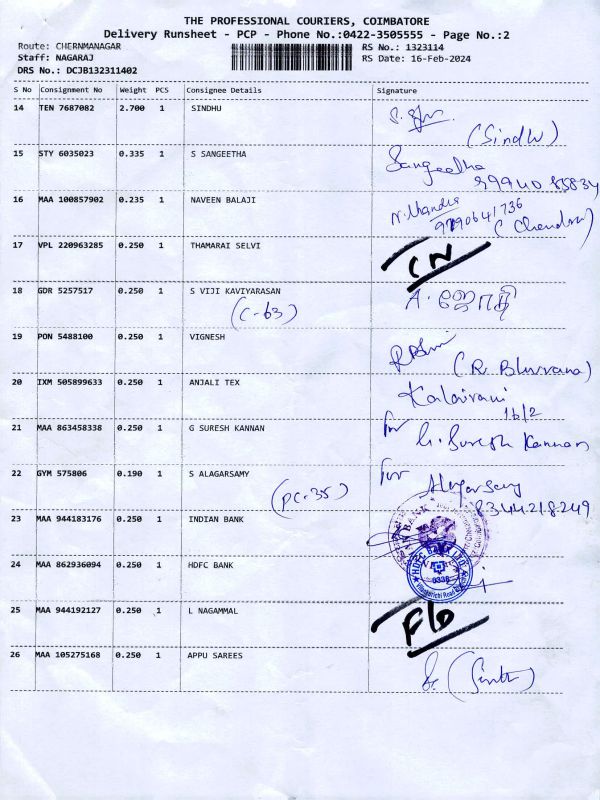 THE PROFESSIONAL COURIERS, COIMBATORE
Delivery Runsheet - PCP - Phone No.:0422-3505555 - Page No.:2
Route: CHERNMANAGAR RS No.: 1323114
Staff: NAGARAJ RS Date: 16-Feb-2024
DRS No.: DCJB132311402
S No Consignment No Weight PCS Consignee Details Signature
14 TEN 7687082 2.700 1 SINDHU
(Sindhu)
15 STY 6035023 0.335 1 S SANGEETHA Sangeetha
99940 85834
16 MAA 100857902 0.235 1 NAVEEN BALAJI N. Chandra
9790641736
(Chandra)
17 VPL 220963285 0.250 1 THAMARAI SELVI
CN
18 GDR 5257517 0.250 1 S VIJI KAVIYARASAN A. ஜோதி
(C-63)
19 PON 5488100 0.250 1 VIGNESH
(R. Bhuvana)
20 IXM 505899633 0.250 1 ANJALI TEX Kalaivani
16/2
21 MAA 863458338 0.250 1 G SURESH KANNAN for G. Suresh Kannan
22 GYM 575806 0.190 1 S ALAGARSAMY for Alagarsamy
(PC-35) 8344218249
23 MAA 944183176 0.250 1 INDIAN BANK
24 MAA 862936094 0.250 1 HDFC BANK
HDFC BANK LTD.
0338
25 MAA 944192127 0.250 1 L NAGAMMAL
F/D
26 MAA 105275168 0.250 1 APPU SAREES